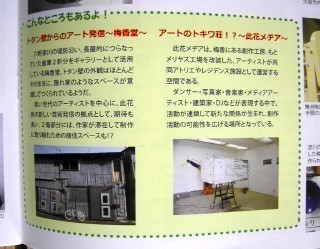 こんなところもあるよ!
トタン壁からのアート発信〜梅香堂〜
六軒家川の堤防沿い、長屋的につらなっ
ていた倉庫2軒分をギャラリーとして活
用している梅香堂。トタン壁の外観はほとんど
そのままに、隠れ家のようなスペースが意
識してつくられているようだ。
若い世代のアーティストを中心に、此花
発の新しい芸術発信の拠点として、期待も
高い。2階部分には、作家が滞在して制作
に取り組むための居住スペースも!?
アートのトキワ荘!?〜此花メヂア〜
此花メヂアは、梅香にある創作工房。もと
メリヤス工場を改装した、アーティストが共
同アトリエやレジデンス施設として運営する
空間である。
ダンサー・写真家・音楽家・メディアアー
ティスト・建築家・DJなどが表現する中で、
活動が連鎖して新たな関係が生まれ、創作
活動の可能性を広げる場所となっている。